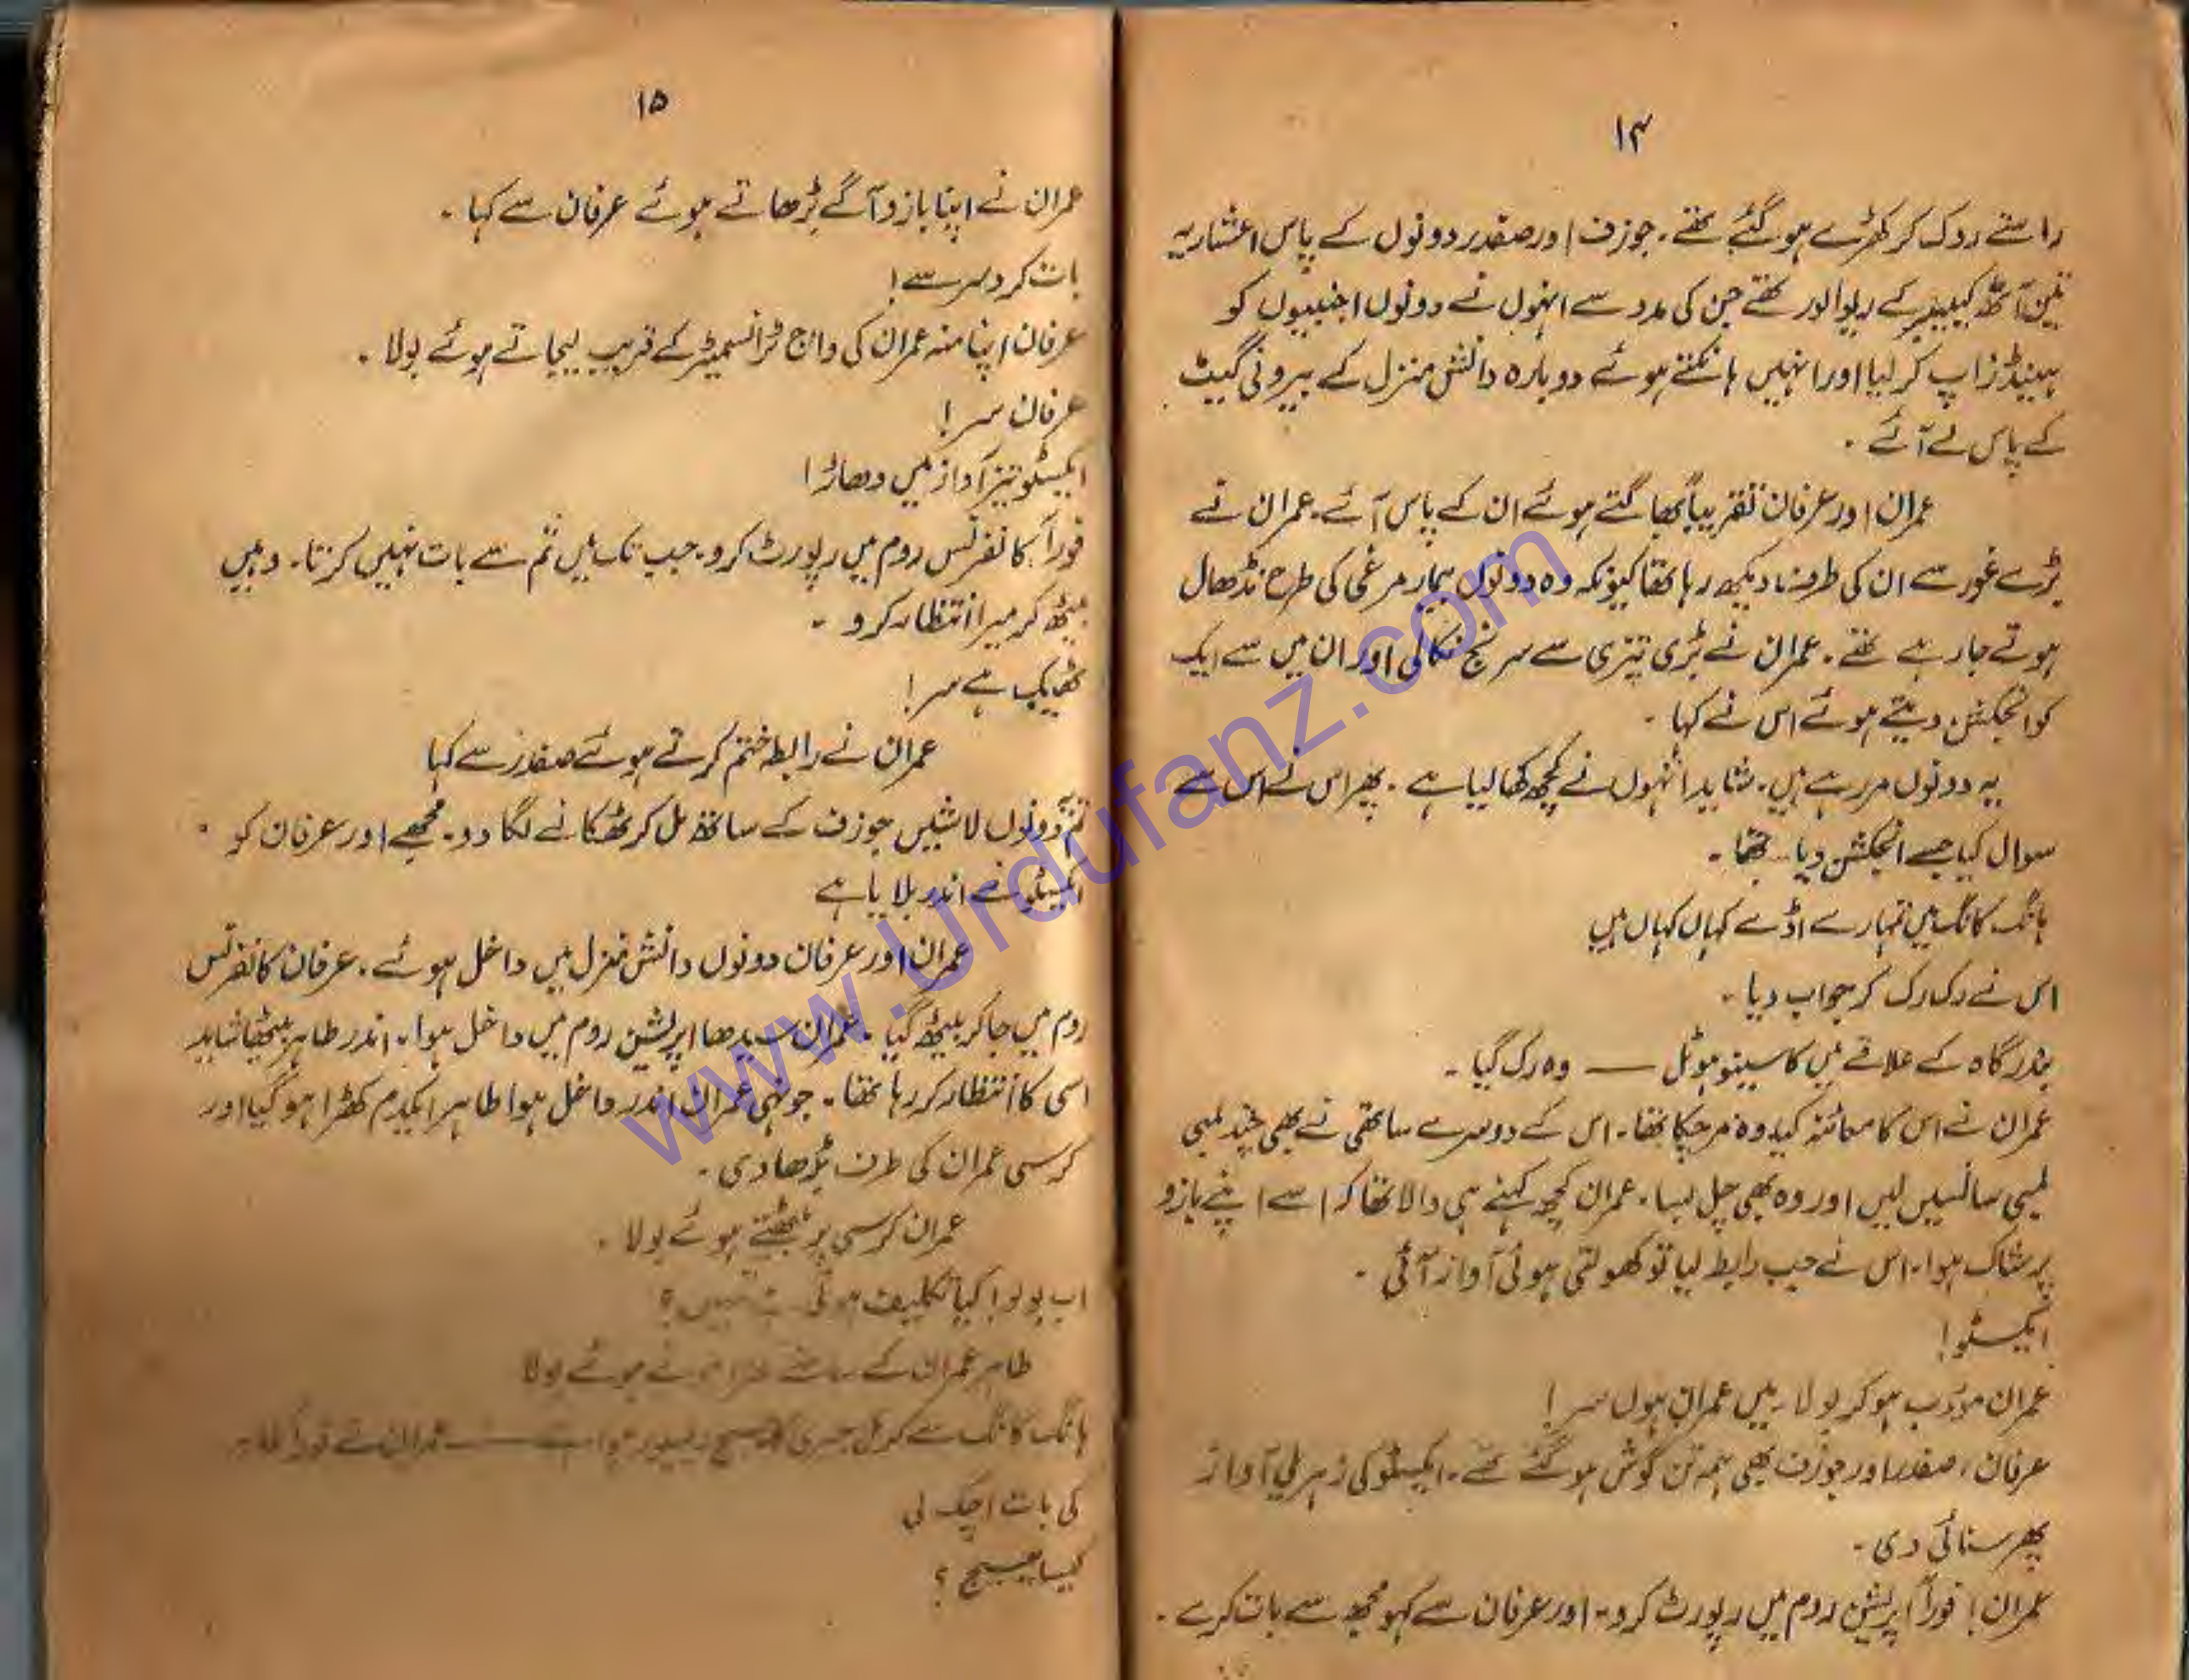 ۱۴
راستے روک کر کھڑے ہو گئے تھے۔ جوزف اور صفدر دونوں کے پاس اعشاریہ
تین آٹھ کیلیبر کے ریوالور تھے جن کی مدد سے انہوں نے دونوں اجنبیوں کو
ہینڈز اپ کر لیا اور انہیں ہانکتے ہوئے دوبارہ دانش منزل کے بیرونی گیٹ
کے پاس لے آئے۔
عمران اور عرفان تقریباً بھاگتے ہوئے ان کے پاس آئے۔ عمران نے
بڑے غور سے ان کی طرف دیکھ رہا تھا کیونکہ وہ دونوں بیمار مرغی کی طرح نڈھال
ہوتے جا رہے تھے۔ عمران نے بڑی تیزی سے سرنج نکالی اور ان میں سے ایک
کو انجکشن دیتے ہوئے اس نے کہا۔
یہ دونوں مر رہے ہیں۔ شاید انہوں نے کچھ کھا لیا ہے۔ پھر اس نے اس سے
سوال کیا جسے انجکشن دیا تھا۔
ہانگ کانگ میں تمہارے اڈے کہاں کہاں ہیں
اس نے رک رک کر جواب دیا۔
بندرگاہ کے علاقے میں کاسینو ہوٹل — وہ رک گیا۔
عمران نے اس کا معائنہ کیا وہ مر چکا تھا۔ اس کے دوسرے ساتھی نے بھی چند لمبی
لمبی سانسیں لیں اور وہ بھی چل بسا۔ عمران کچھ کہنے ہی والا تھا کہ اسے اپنے بازو
پر شاک ہوا۔ اس نے جب رابطہ لیا تو کھولتی ہوئی آواز آئی۔
ایکسٹو!
عمران مؤدب ہو کر بولا۔ میں عمران ہوں سر!
عرفان، صفدر اور جوزف بھی ہمہ تن گوش ہو گئے تھے۔ ایکسٹو کی زہریلی آواز
پھر سنائی دی۔
عمران! فوراً آپریشن روم میں رپورٹ کرو۔ اور عرفان سے کہو مجھ سے بات کرے۔
۱۵
عمران نے اپنا بازو آگے بڑھاتے ہوئے عرفان سے کہا۔
بات کرو سر سے!
عرفان اپنا منہ عمران کی واچ ٹرانسمیٹر کے قریب لیجاتے ہوئے بولا۔
عرفان سر!
ایکسٹو تیز آواز میں دھاڑا!
فوراً کانفرنس روم میں رپورٹ کرو۔ جب تک میں تم سے بات نہیں کرتا۔ وہیں
بیٹھ کر میرا انتظار کرو۔
ٹھیک ہے سر!
عمران نے رابطہ ختم کرتے ہوئے صفدر سے کہا
تم دونوں لاشیں جوزف کے ساتھ مل کر ٹھکانے لگا دو۔ مجھے اور عرفان کو
ایکسٹو نے اندر بلایا ہے
عمران اور عرفان دونوں دانش منزل میں داخل ہوئے۔ عرفان کانفرنس
روم میں جا کر بیٹھ گیا۔ عمران سیدھا اپریشن روم میں داخل ہوا۔ اندر طاہر بیٹھا شاید
اسی کا انتظار کر رہا تھا۔ جونہی عمران اندر داخل ہوا طاہر ایکدم کھڑا ہو گیا اور
کرسی عمران کی طرف بڑھا دی۔
عمران کرسی پر بیٹھتے ہوئے بولا۔
اب بولو! کیا تکلیف ہوئی ہے تمہیں؟
طاہر عمران کے سامنے ہوتے ہوئے بولا
ہانگ کانگ سے کرنل جیری کا میسج ریسیور ہوا ہے — عمران نے فوراً طاہر
کی بات اچک لی
کیسا میسج؟
www.Urdufanz.com